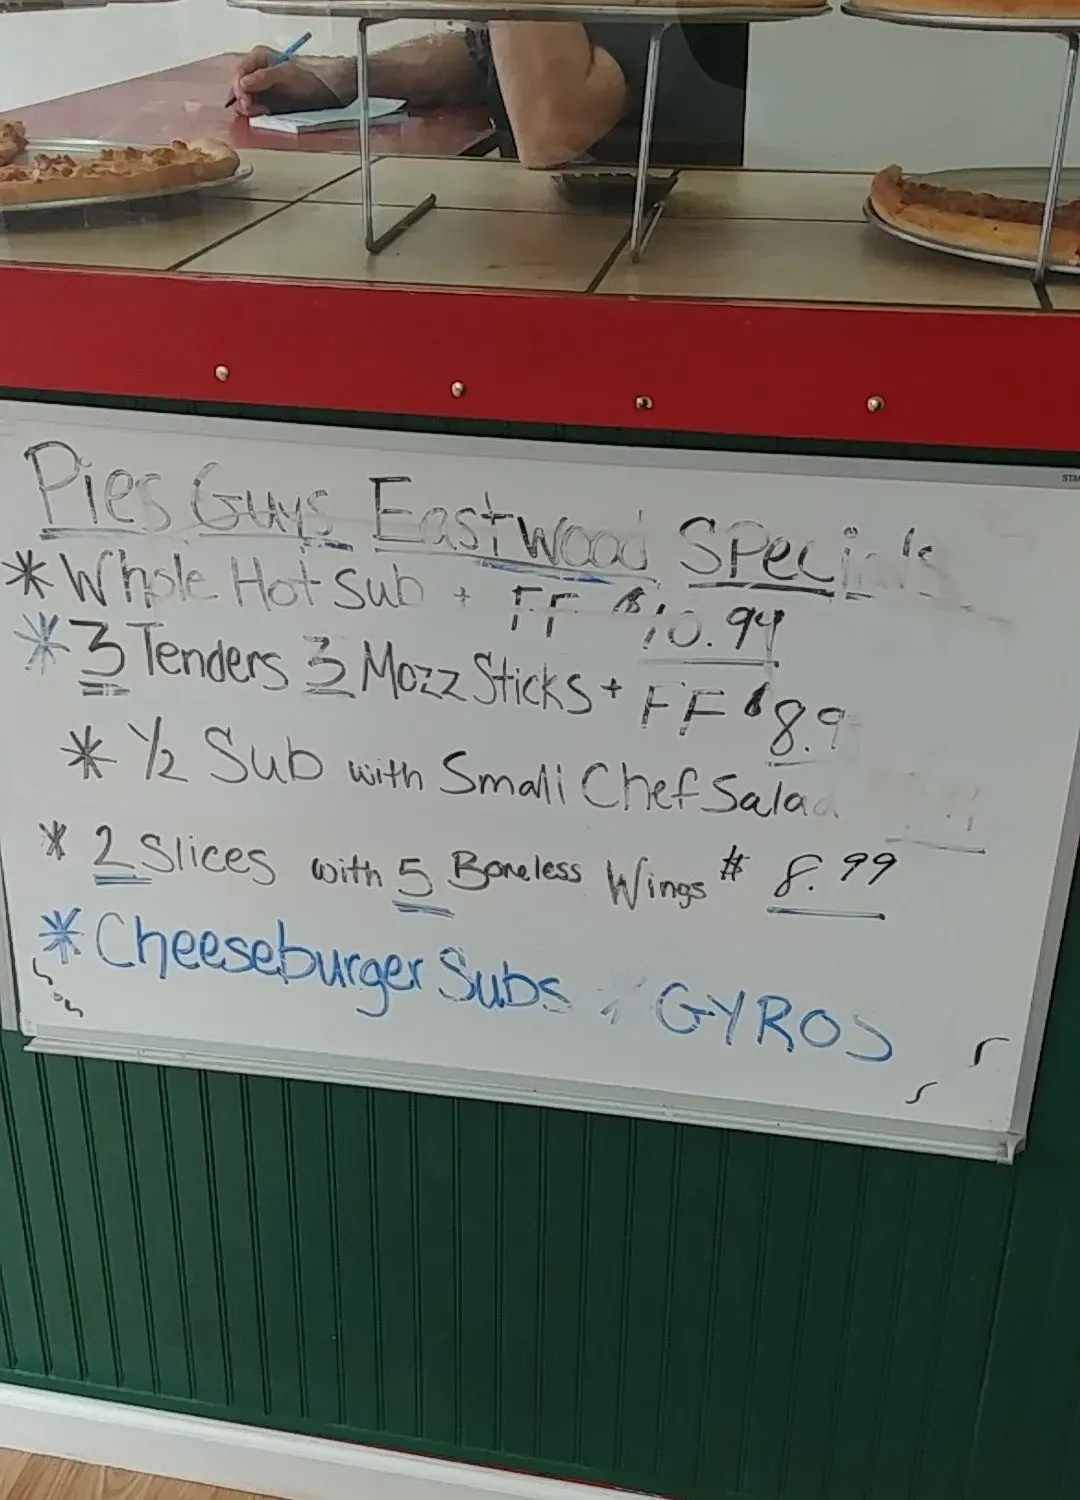 Pies Guys Eastwood Specials
* Whole Hot Sub + FF $10.99
* 3 Tenders 3 Mozz Sticks + FF $8.9
* 1/2 Sub with Small Chef Salad
* 2 Slices with 5 Boneless Wings $ 8.99
* Cheeseburger Subs * GYROS